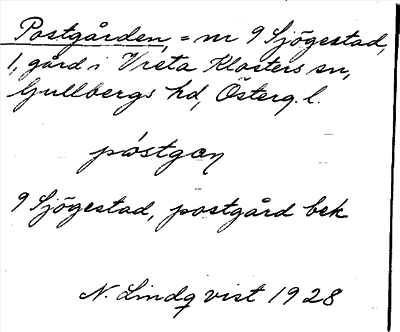 Postgården, = nr 9 Sjögestad,
1, gård i Vreta Klosters sn,
Gullbergs hd, Österg. l.
9 Sjögestad, postgård bek
N. Lindqvist 1928